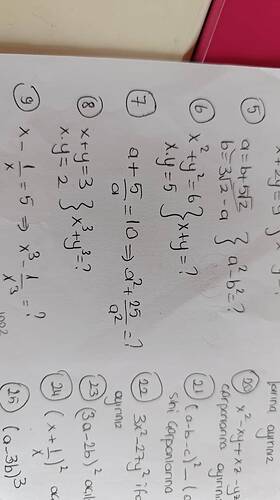 x+2y=5
⑤ a=b+5√2
b=3√2-a } a²-b²=?
⑥ x²+y²=6
x.y=5 } x+y=?
⑦ a+5/a=10 ⇒ a²+25/a²=?
⑧ x+y=3
x.y=2 } x³+y³=?
⑨ x-1/x=5 ⇒ x³-1/x³=?
ayırınız
⑳ x²-xy+xz-yz
çarpanlarına ayırınız
㉑ (a-b-c)²-(a
sini çarpanlarına
㉒ 3x²-27y² ifa
ayırınız
㉓ (3a-2b)² açılı
㉔ (x+1/x)² aç
㉕ (a-3b)³